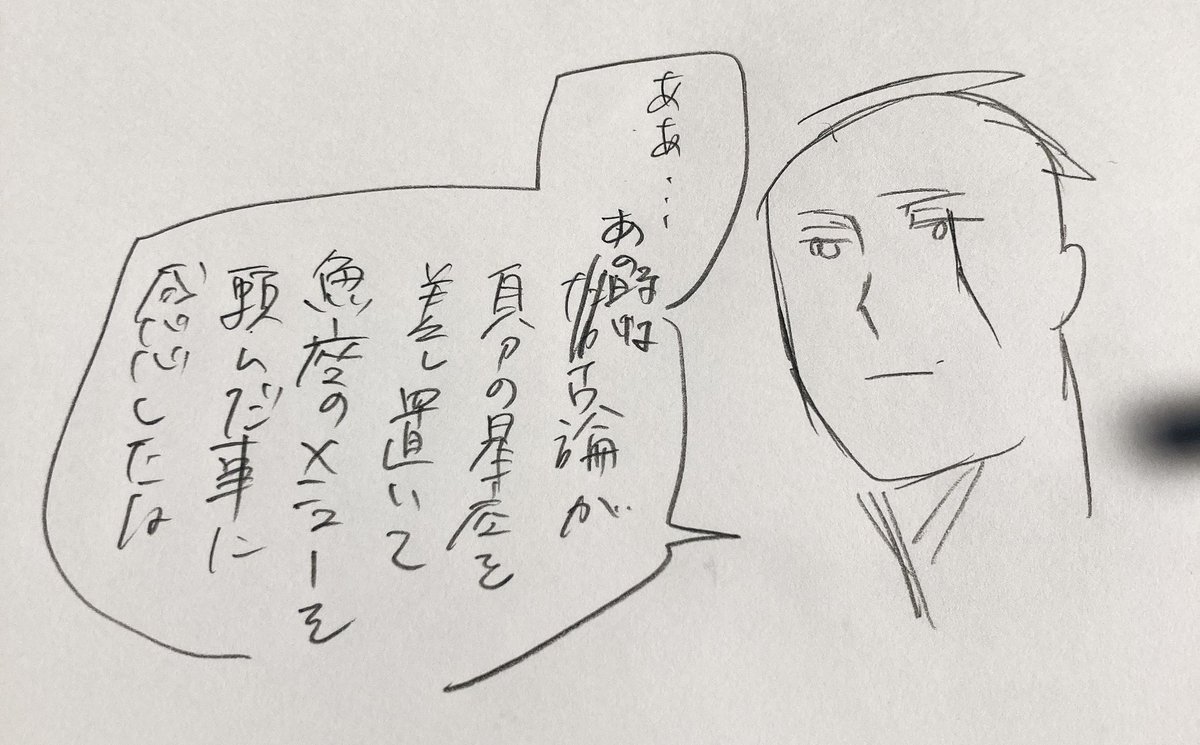 ああ…
あの時は
古論が
自分の星座を
差し置いて
魚座のメニューを
頼んだ事に
感心したな